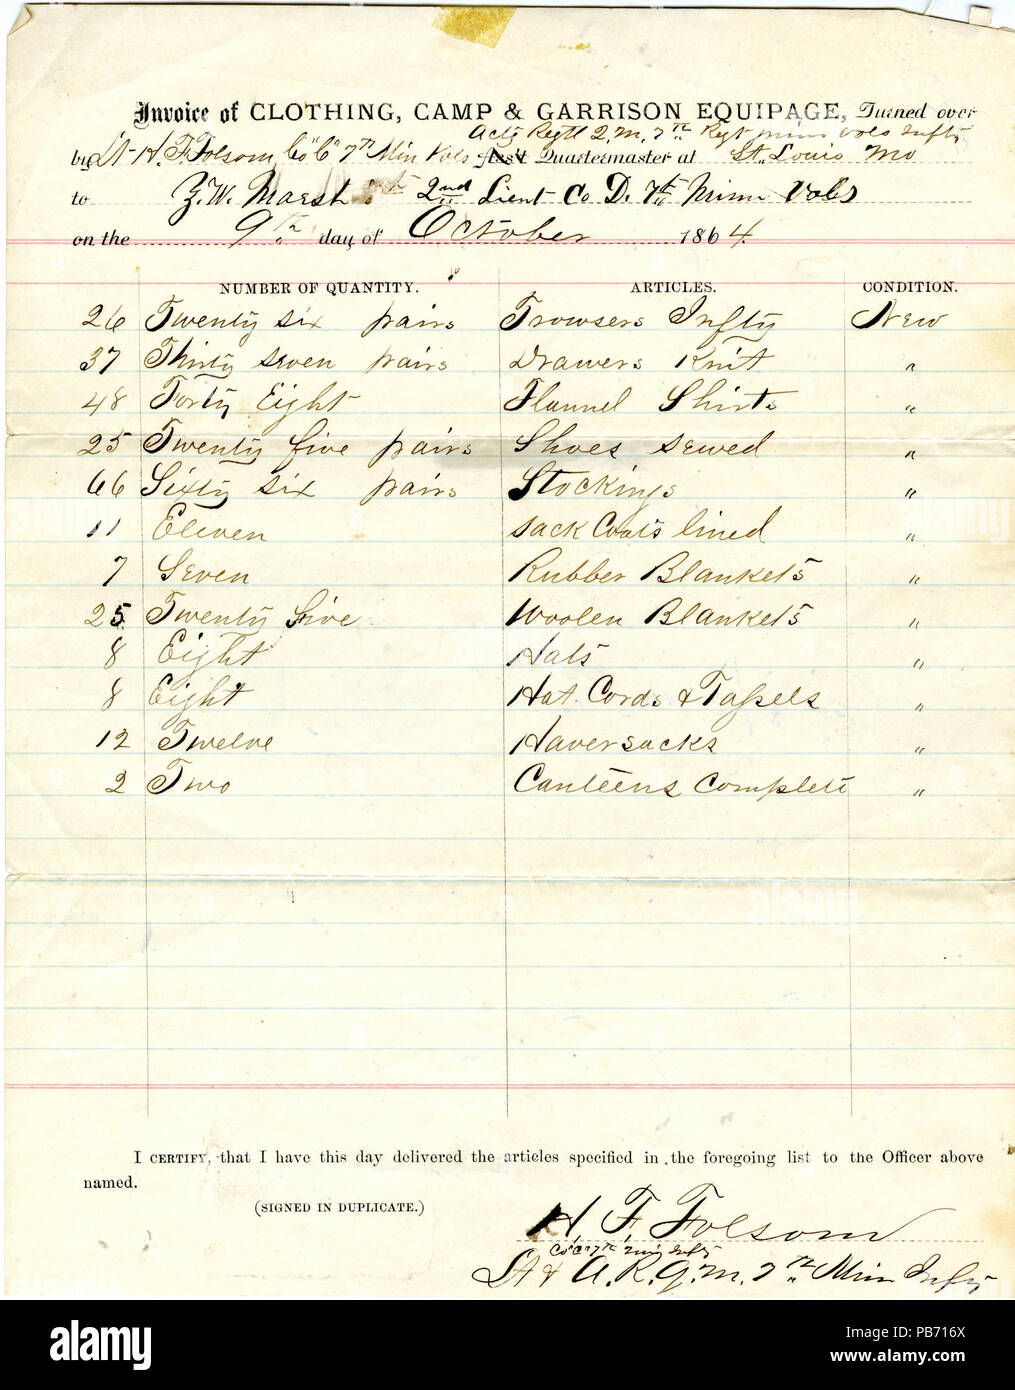 Invoice of CLOTHING, CAMP & GARRISON EQUIPAGE, Turned over
Actg Regtl Q. M. 7th Regt Minn Vols Infty
by Lt H. F. Folsom Co "C" 7th Min Vols Quartermaster at St. Louis Mo
to Z. W. Marsh 2nd Lieut Co D. 7th Minn Vols
on the 9th day of October 1864.
NUMBER OF QUANTITY. ARTICLES. CONDITION.
26 Twenty six pairs Trowsers Infty New
37 Thirty seven pairs Drawers Knit "
48 Forty Eight Flannel Shirts "
25 Twenty five pairs Shoes sewed "
66 Sixty six pairs Stockings "
11 Eleven Sack Coats lined "
7 Seven Rubber Blankets "
25 Twenty five Woolen Blankets "
8 Eight Hats "
8 Eight Hat Cords & Tassels "
12 Twelve Haversacks "
2 Two Canteens Complete "
I CERTIFY, that I have this day delivered the articles specified in the foregoing list to the Officer above
named.
(SIGNED IN DUPLICATE.)
H. F. Folsom
Co "C" 7th Min Infty
Lt & A. R. Q. M. 7th Minn Infty
alamy
Image ID: PB716X
www.alamy.com